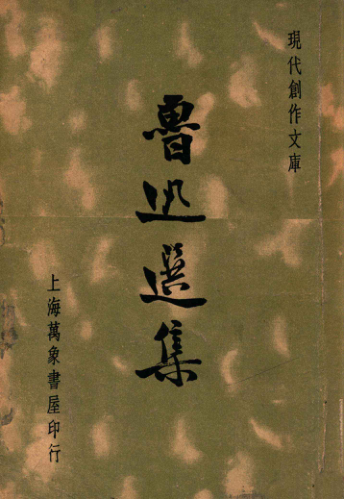 現代創作文庫
魯迅選集
上海萬象書屋印行